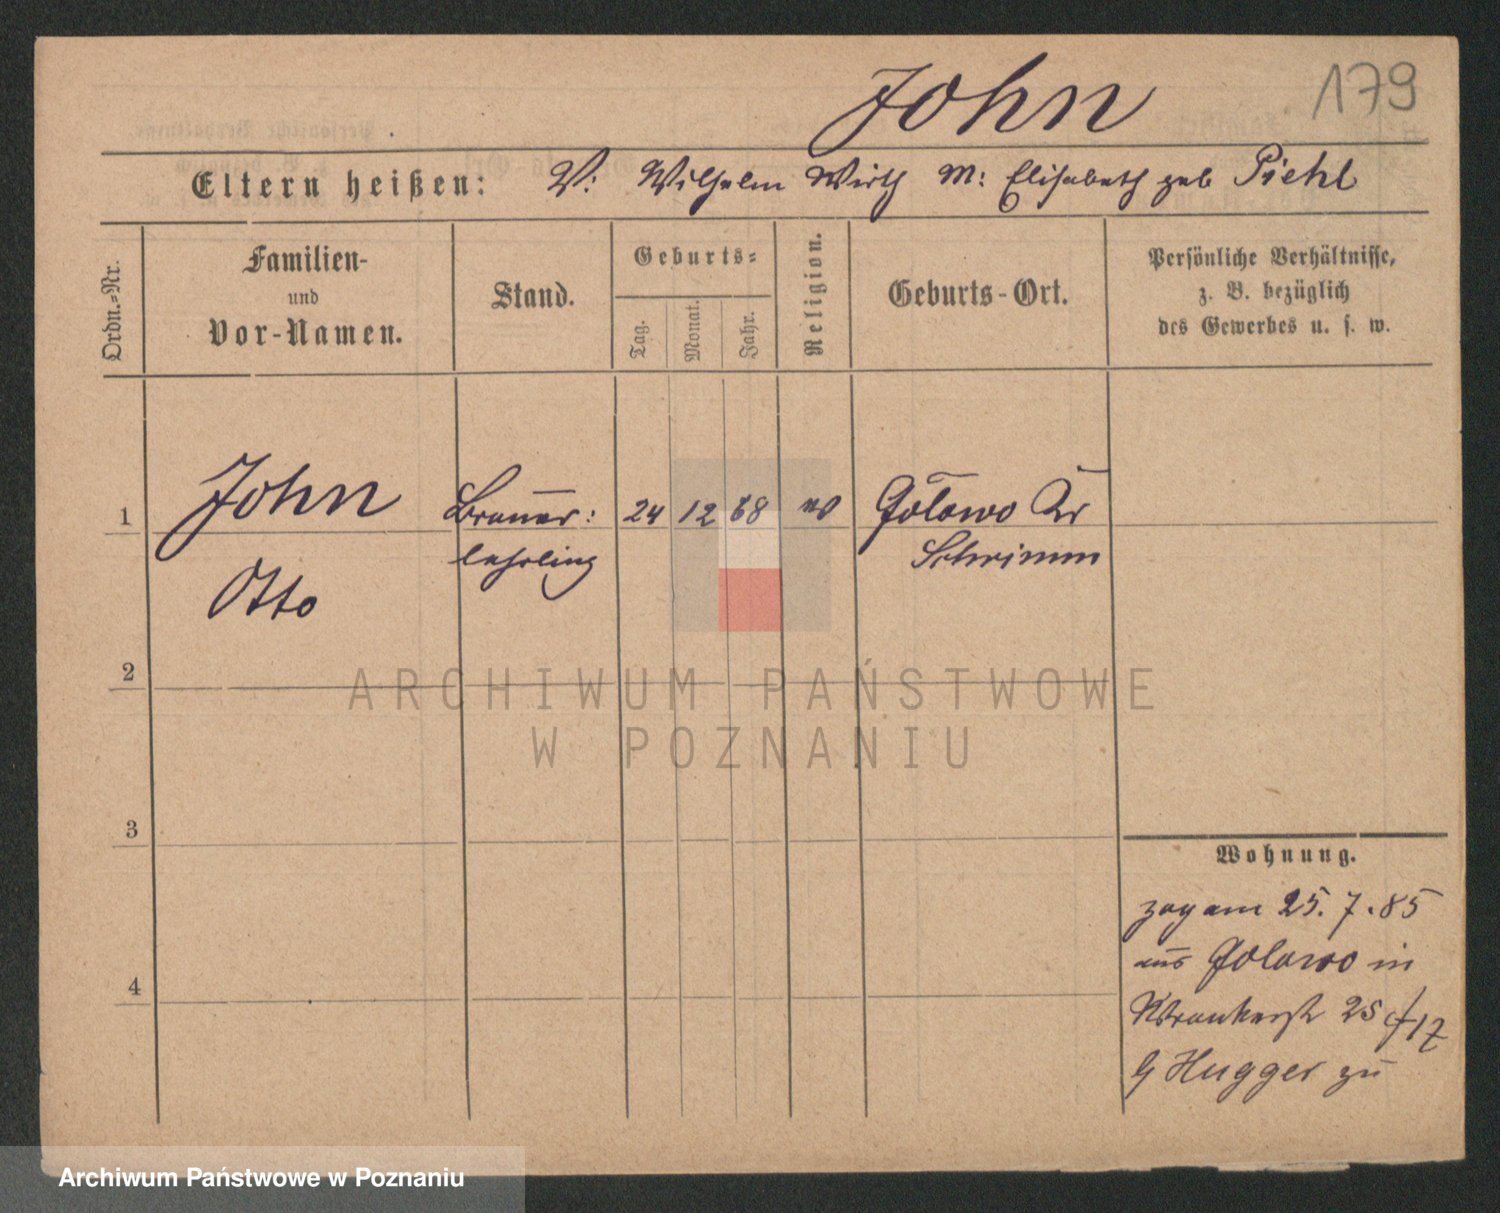 John 179
Eltern heißen: V: Wilhelm Wirth M: Elisabeth geb Piehl
Ordn.=Nr.
Familien-
und
Vor-Namen.
Stand.
Geburts=
Tag.
Monat.
Jahr.
Religion.
Geburts-Ort.
Persönliche Verhältnisse,
z. B. bezüglich
des Gewerbes u. s. w.
1 John Brauer: 24 12 68 Golawo Kr
lehrling Schrimm
Otto
2
3
4
Wohnung.
zog am 25. 7. 85
aus Golawo in
25
Hugger zu
ARCHIWUM PAŃSTWOWE
W POZNANIU
Archiwum Państwowe w Poznaniu